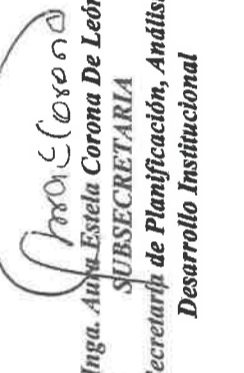 Inga. Aura Estela Corona De León
SUBSECRETARIA
ecretaría de Planificación, Análisi
Desarrollo Institucional